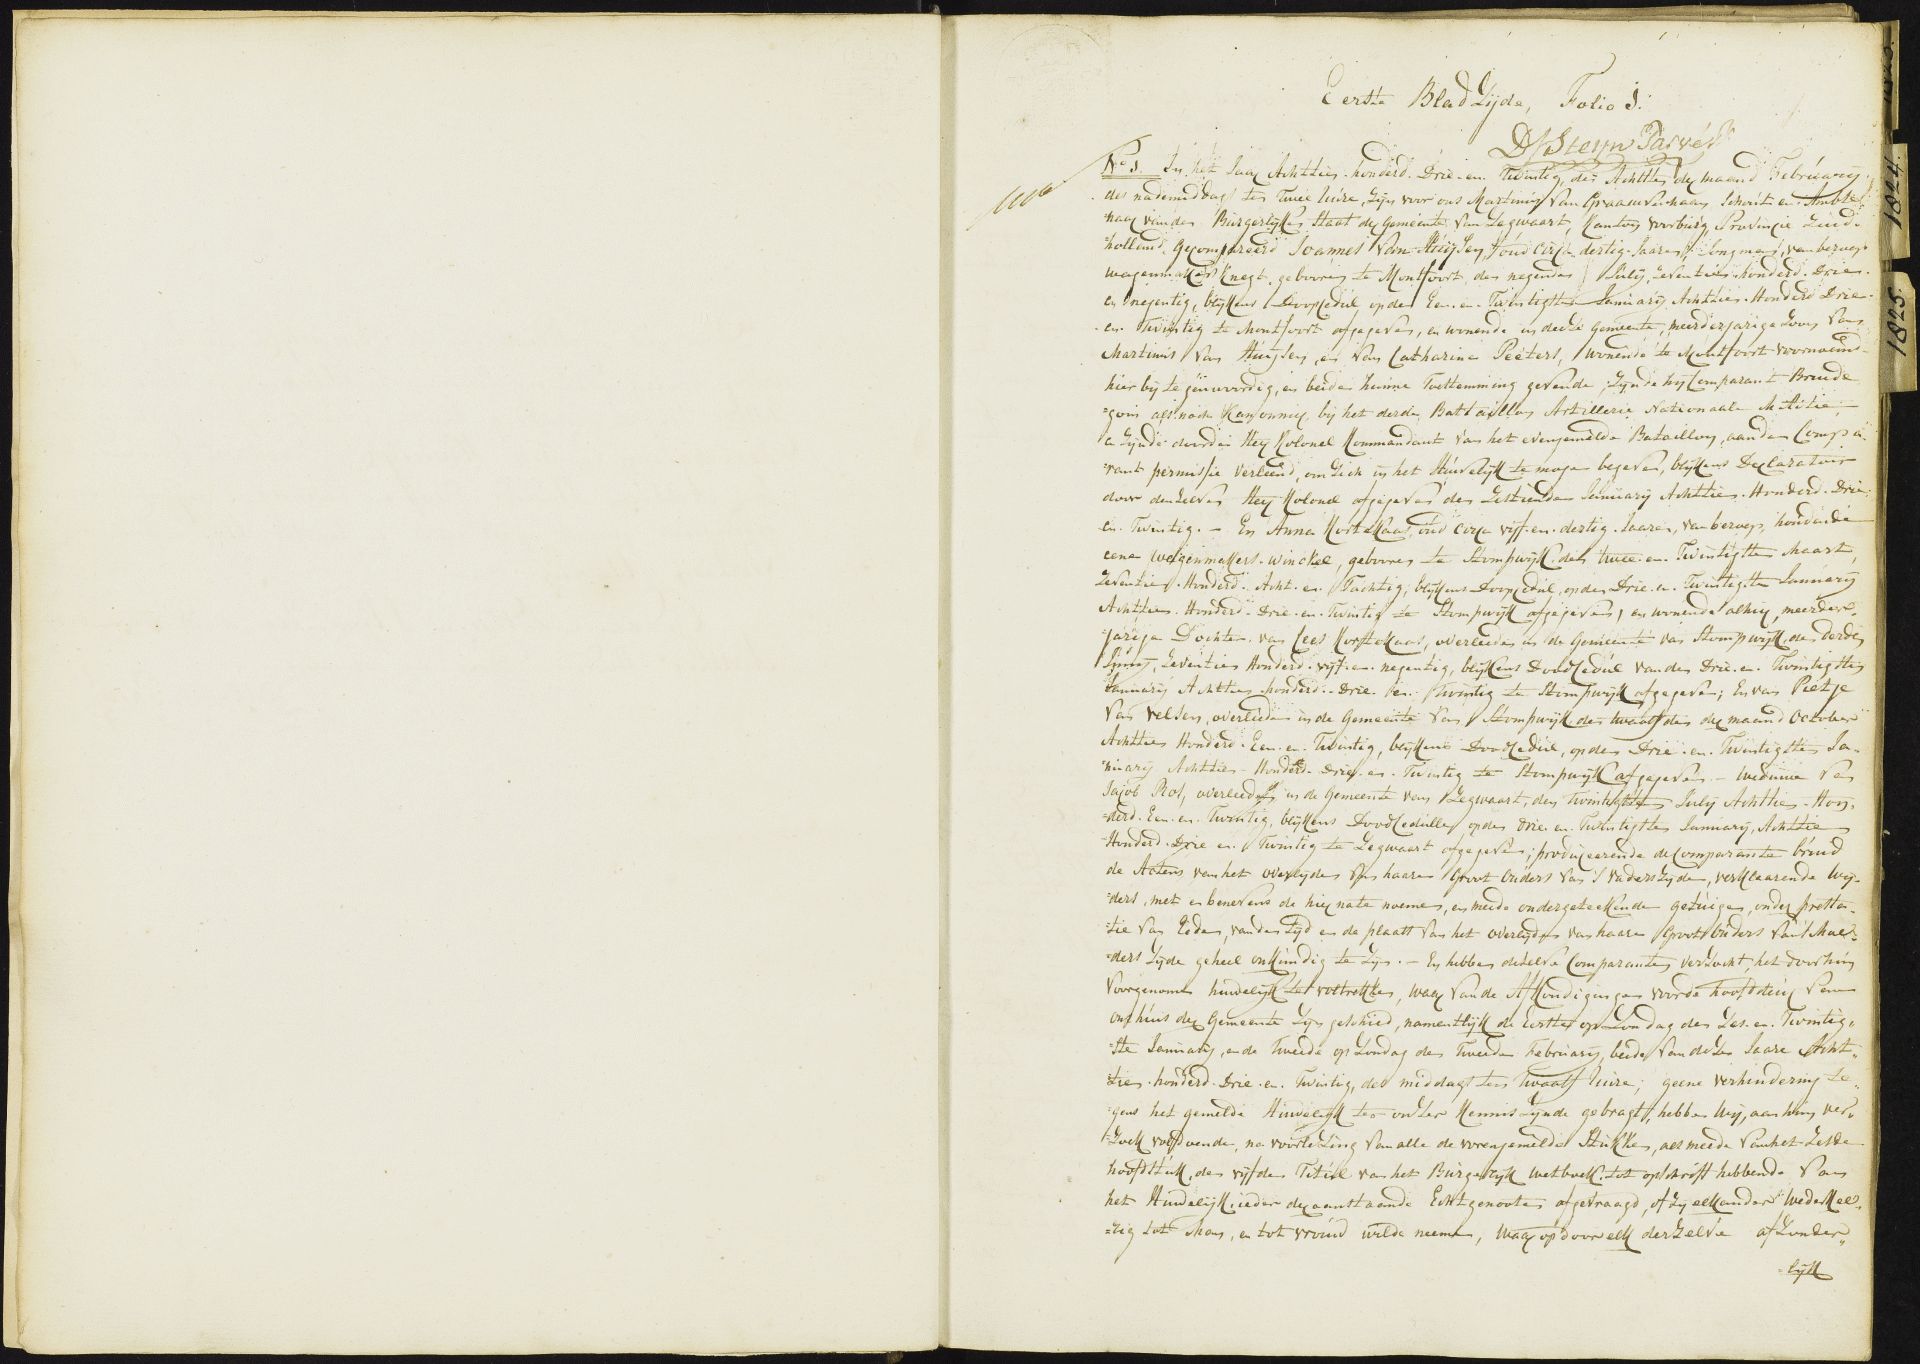 Eerste BladZijde, Folio 1.
D. Steyn Parvé
No 1. In het Jaar Achttien honderd Drie en Twintig, den Achtsten der maand Februarij,
des nademiddags ten Twee Uure, Zijn voor ons Martinus Van Schout en Ambte-
naar van den Burgerlijken Staat der Gemeente van Zegwaart, Kanton Voorburg, Provincie Zuid-
=holland, Gecompareerd Joannes Van Huijsen, oud circa dertig Jaaren, Jongman, van beroep
wagenmakers Knegt, gebooren te Montfoort, den negenden Julij Zeventien honderd Drie
en negentig, blijkens DoopCedul, op den Een en Twintigsten Januarij Achttien Honderd Drie
en Twintig te Montfoort afgegeven, en wonende in deeze Gemeente, meerderjarige Zoon van
Martinus Van Huijsen, en van Catharina Peeters, wonende te Montfoort voornoemd
hier bij tegenwoordig, en beide hunne Toestemming gevende, Zijnde hij Comparant Bruide-
=gom als node Kanonnier, bij het derde Battaillon Artillerie Nationaale Militie,
Zijnde door den Heer Kolonel Kommandant van het evengemelde Bataillon, aan den Compa-
=rant permissie verleend, om Zich in het Huwelijk te mogen begeven, blijkens Declaratoir
door denZelven Heer Kolonel afgegeven den Zestienden Januarij Achttien Honderd Drie
en Twintig. — En Anna Kortekaas, oud circa vijf en dertig Jaaren, van beroep, houdende
eene wagenmakers winckel, gebooren te Stompwijk den twee en Twintigsten Maart,
Zeventien Honderd Acht en Tachtig, blijkens DoopCedul, op den Drie en Twintigsten Januarij
Achttien Honderd Drie en Twintig te Stompwijk afgegeven, en wonende alhier, meerder-
jarige Dochter van Cees Kortekaas, overleeden in de Gemeente van Stompwijk, den derden
Zeventien Honderd vijf en negentig, blijkens DoodCedul van den Drie en Twintigsten
Januarij Achttien honderd Drie en Twintig te Stompwijk afgegeven; En van Pietje
Van Velsen, overleeden in de Gemeente van Stompwijk den twaalfden der maand October
Achttien Honderd Een en Twintig, blijkens DoodCedul, op den Drie en Twintigsten Ja-
=nuarij Achttien Honderd Drie en Twintig te Stompwijk afgegeven — Weduwe van
Jacob Rol, overleeden in de Gemeente van Zegwaart, den Twintigsten Julij Achttien Hon-
=derd Een en Twintig, blijkens DoodCedulle, op den Drie en Twintigsten Januarij, Achttien
Honderd Drie en Twintig te Zegwaart afgegeven; produceerende de Comparante bruid
de Actens van het overlijden van haare Groot Ouders van 's Vaders Zijde, verklaarende Wij-
=ders, met en benevens de hier nate noemen, en meede ondergeteekende getuigen, onder presta-
=tie van Eede, van den tijd en de plaats van het overlijden van haare Groot Ouders van 's Moe-
=ders Zijde geheel onkundig te Zijn. — En hebben deZelve Comparanten verZocht, het door hun
voorgenomen huwelijk te voltrekken, waar van de Afkondigingen voor de hoofddeur van
ons huis der Gemeente Zijn geschied, namentlijk de Eerste op Zondag den Zes en Twintig-
=ste Januarij, en de Tweede op Zondag den Tweede Februarij, beide van deZen Jaare Acht-
=tien honderd Drie en Twintig, des middags ten Twaalf Uure; geene verhindering te-
=gens het gemelde Huwelijk ter onZer Kennis Zijnde gebragt, hebben Wij, aan hun ver-
=Zoek voldoende, na voorleZing van alle de vorengemelde Stukken, als meede van het Zesde
hoofdstuk, den vijfden Titul van het Burgerlijk wetboek, tot opschrift hebbende van
het Huwelijk, ieder der aanstaande Echtgenooten afgevraagd, of Zij elkander Wederkee-
=rig tot Man, en tot vrouw wilde neemen, waar op door elk derZelve afZonder-
=lijk
1824.
1825.